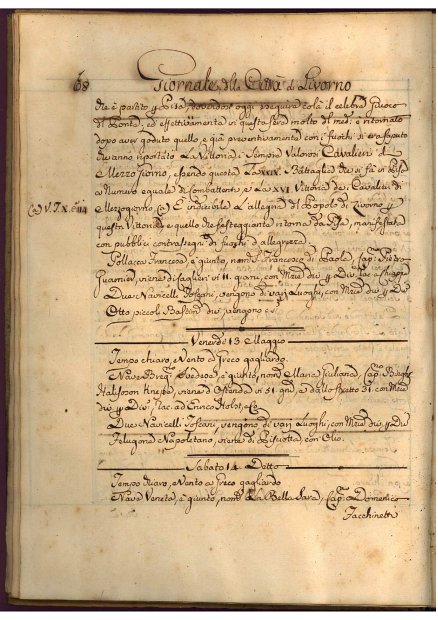 68 Giornale della Città di Livorno
che è partito p Pisa, dovendosi oggi eseguire colà il celebre Giuoco
di Ponte, ed effettivamente in questa sera molto di med. è ritornato
dopo aver goduto quello, e già preventivamente con i fuochi si era saputo
che anno riportato La Vittoria i Sempre Valorosi Cavalieri di
Mezzo Giorno, essendo questa La XXIX. Battaglia che si fà in Pisa
a Numero eguale di Combattenti, e La XVI Vittoria de i Cavalieri di
(a) V. T. X. Mezzogiorno (a) E indicibile L'allegria del Popolo di Livorno p
questa Vittoria, e quello che festeggiante ritorna da Pisa, manifestata
con pubblici contrasegni di fuochi d'allegrezza
Pollacca Francese, è giunto, nom. S. Francesco di Paola, Cap. Pietro
Guarnier, viene di Cagliari in 11. giorni, con Merc. div. p Div.
Due Navicelli Toscani, vengono di vari Luoghi, con Merc. div. p Div
Otto piccoli Bastim. div. vengono
Venerdì 13 Maggio
Tempo chiaro, e Vento a Greco gagliardo.
Nave Svedese, è giunto, nom. Maria Giuliana, Cap.
viene d'Ostenda in 51 gni, e dallo Stretto con Merc
div p Div. Rac. ad Enrico
Due Navicelli Toscani, vengono di vari Luoghi, con Merc div p Div
Felugone Napoletano, viene di Bisuotta, con Olio.
Sabato 14 Detto
Tempo chiaro, e Vento a Greco gagliardo
Nave Veneta, è giunto, nom. La Bella Sara, Cap. Domenico
Jacchinetti